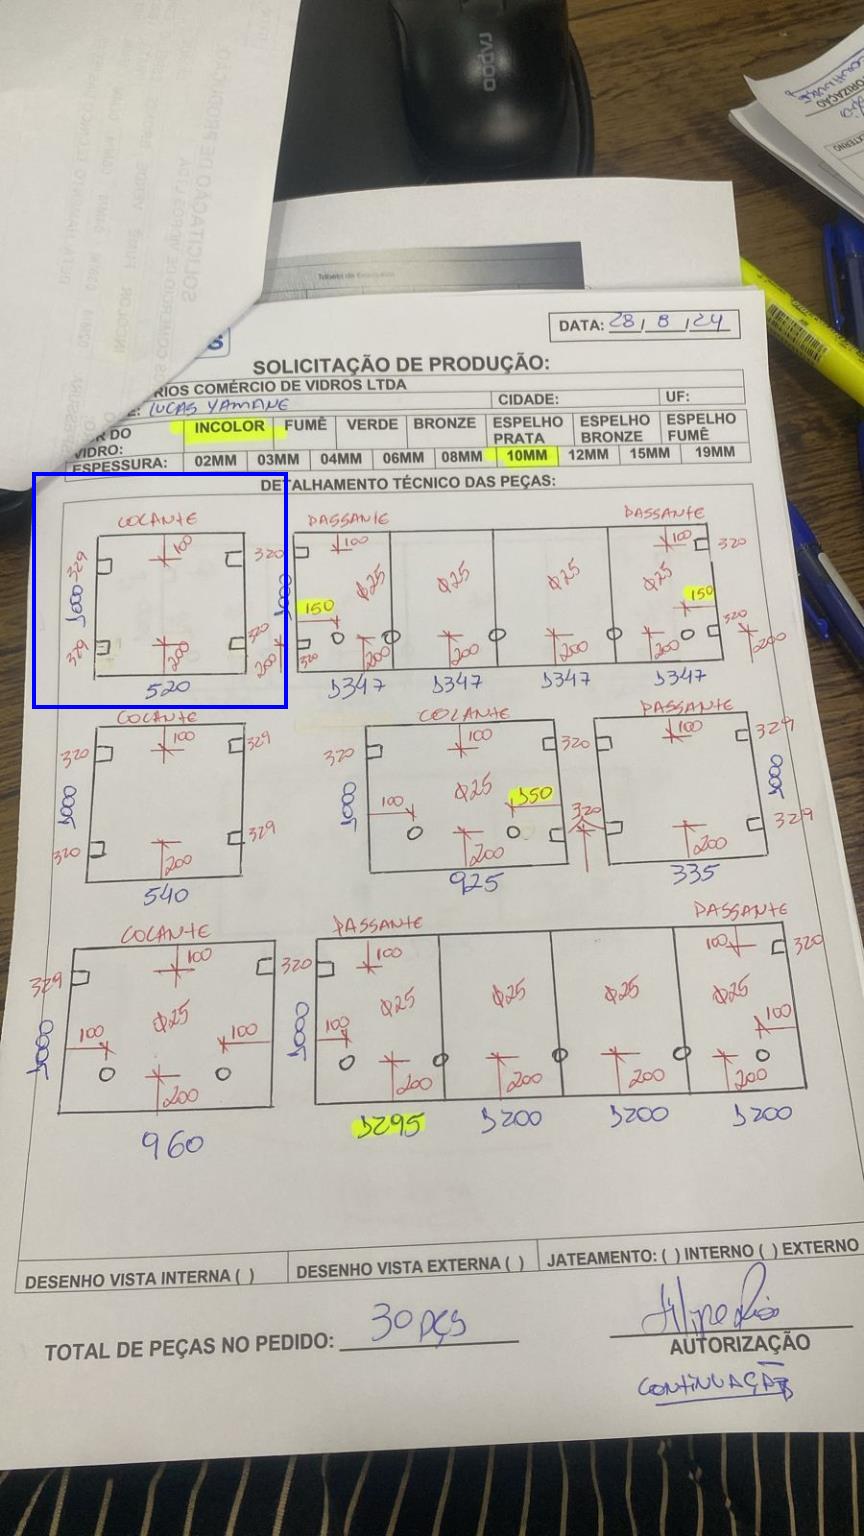 DATA: 28 / 8 / 24
SOLICITAÇÃO DE PRODUÇÃO:
RIOS COMÉRCIO DE VIDROS LTDA
CIDADE: UF:
E: LUCAS YAMANE
OR DO VIDRO: INCOLOR FUMÊ VERDE BRONZE ESPELHO PRATA ESPELHO BRONZE ESPELHO FUMÊ
ESPESSURA: 02MM 03MM 04MM 06MM 08MM 10MM 12MM 15MM 19MM
DETALHAMENTO TÉCNICO DAS PEÇAS:
COLANTE PASSANTE PASSANTE
329 100 320 100 100 320
1000 1000 Φ25 Φ25 Φ25 Φ25
150 150
329 200 320 200 320 200 200 200 200 320 200
520 1347 1347 1347 1347
COLANTE COLANTE PASSANTE
320 100 329 320 100 320 100 329
1000 1000 Φ25 1000
100 150
320 200 329 200 320 200 329
540 925 335
COLANTE PASSANTE PASSANTE
329 100 320 100 100 320
1000 Φ25 1000 Φ25 Φ25 Φ25 Φ25
100 100 100 100
200 200 200 200 200
960 1295 1200 1200 1200
DESENHO VISTA INTERNA ( ) DESENHO VISTA EXTERNA ( ) JATEAMENTO: ( ) INTERNO ( ) EXTERNO
TOTAL DE PEÇAS NO PEDIDO: 30 PÇS
Filipe Rios
AUTORIZAÇÃO
CONTINUAÇÃO